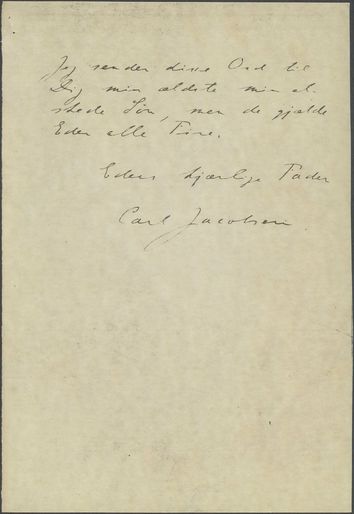 Jeg sender disse Ord til
Dig min ældste min el-
skede Søn, men de gjælde
Eder alle Fire.
Eders kjærlige Fader
Carl Jacobsen